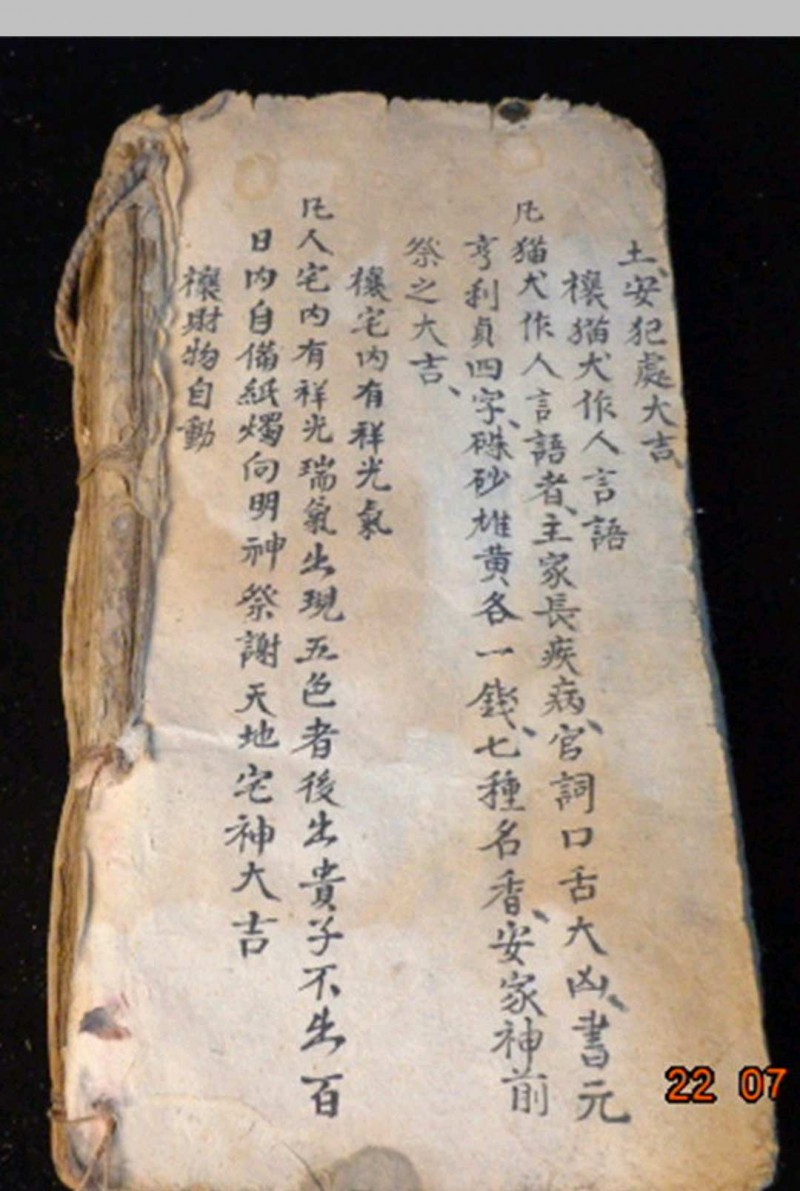 土、安犯處大吉
禳猫犬作人言語
凡猫犬作人言語者、主家長疾病、官詞口舌大凶、書元
亨利貞四字、硃砂雄黄各一錢、七種名香、安家神前
祭之大吉、
禳宅内有祥光氣
凡人宅内有祥光瑞氣出現五色者後出貴子不出百
日内自備紙燭向明神祭謝天地宅神大吉
禳財物自動
22 07